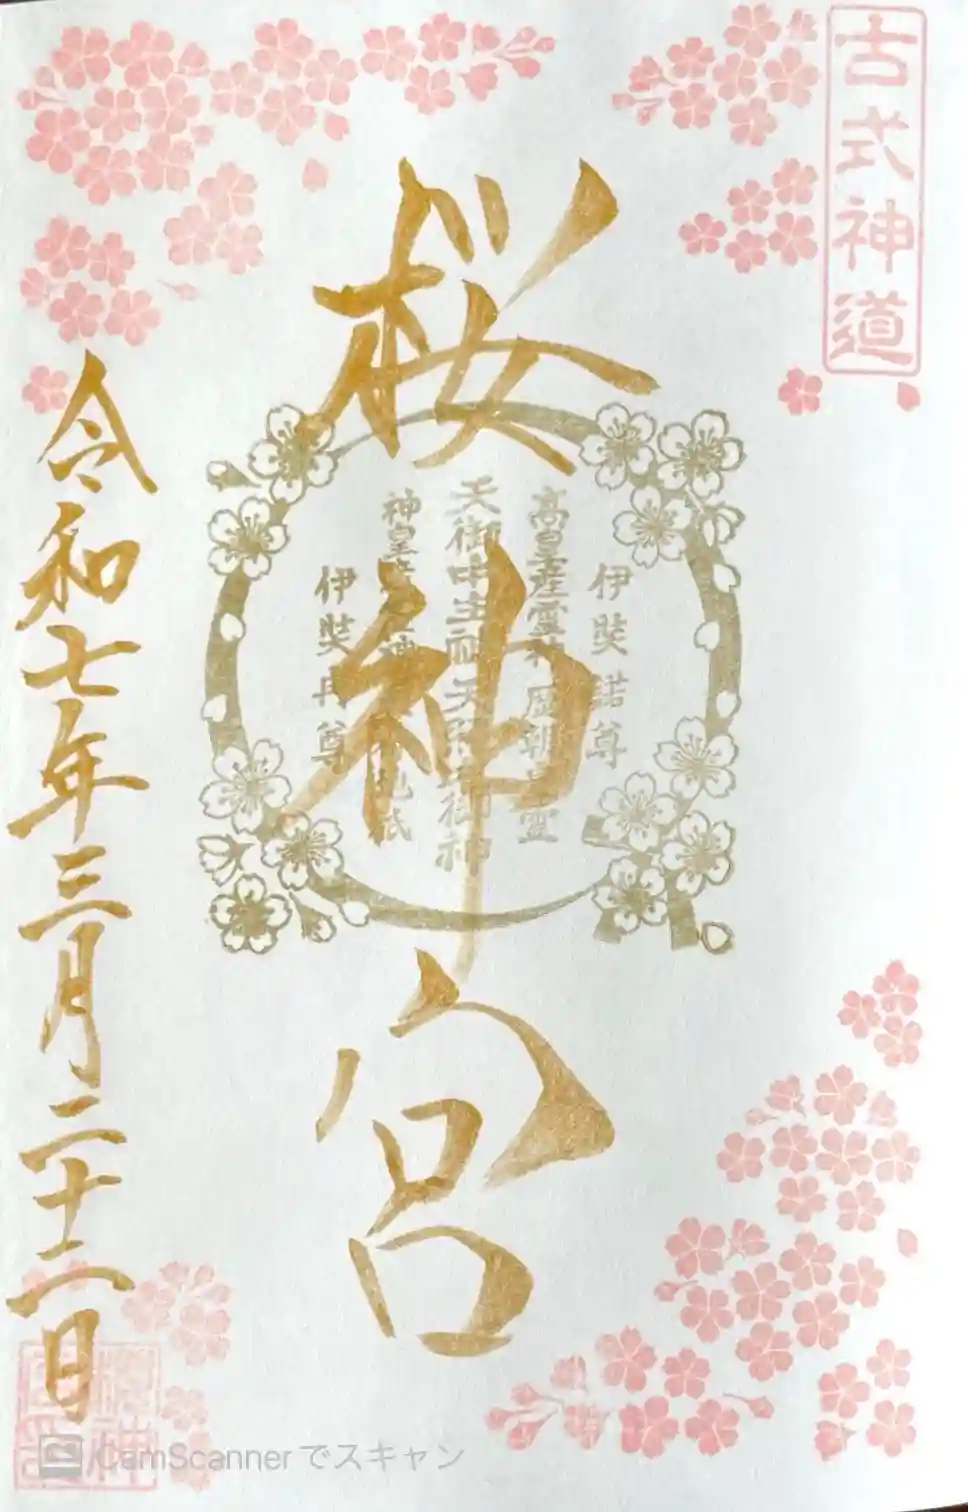 古式神道
桜神宮
伊奘諾尊
高皇産霊神 歴朝皇霊
天御中主神 天照大御神
神皇産霊神 天神地祇
伊奘冉尊
令和七年三月二十二日
CamScannerでスキャン